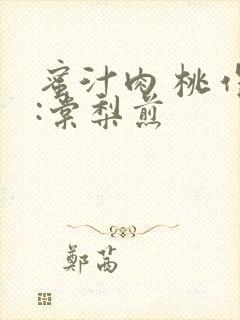 蜜汁肉桃作
:棠梨煎
鄭茜